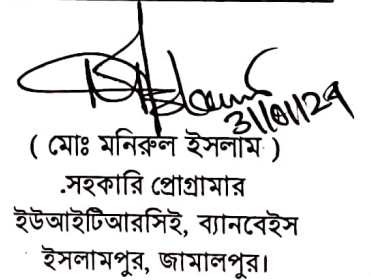 31/01/24
( মোঃ মনিরুল ইসলাম )
.সহকারি প্রোগ্রামার
ইউআইটিআরসিই, ব্যানবেইস
ইসলামপুর, জামালপুর।